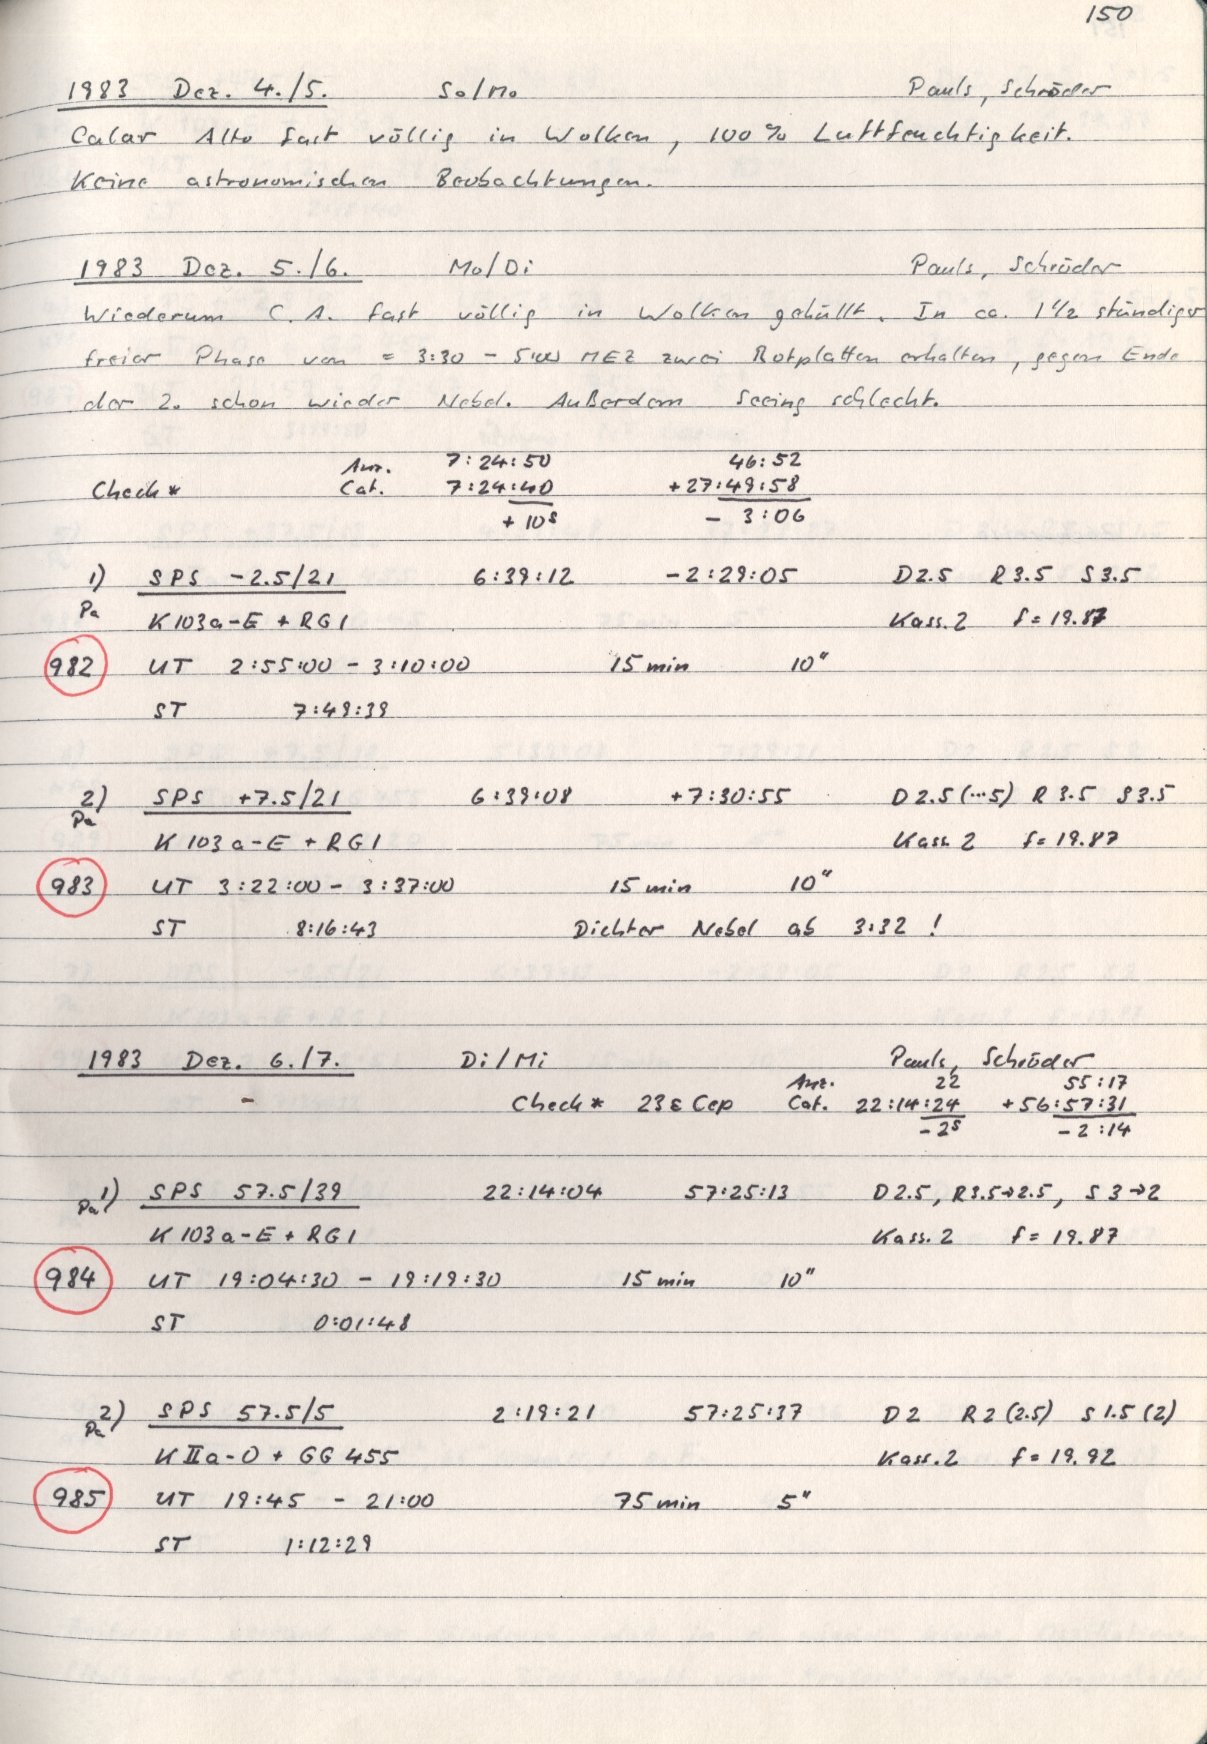 150
1983 Dez. 4./5. So/Mo Pauls, Schröder
Calar Alto fast völlig in Wolken, 100 % Luftfeuchtigkeit.
Keine astronomischen Beobachtungen.
1983 Dez. 5./6. Mo/Di Pauls, Schröder
Wiederum C. A. fast völlig in Wolken gehüllt. In ca. 1 1/2 stündiger
freier Phase von ≈ 3:30 - 5:00 MEZ zwei Rotplatten erhalten, gegen Ende
der 2. schon wieder Nebel. Außerdem Seeing schlecht.
Anz. 7:24:50 46:52
Check* Cat. 7:24:40 +27:49:58
+ 10s - 3:06
1) SPS -2.5/21 6:39:12 -2:29:05 D2.5 R3.5 S3.5
Pa K103a-E + RG1 Kass.2 f=19.87
982 UT 2:55:00 - 3:10:00 15 min 10"
ST 7:49:39
2) SPS +7.5/21 6:39:08 +7:30:55 D2.5(...5) R3.5 S3.5
Pa K103a-E + RG1 Kass. 2 f=19.87
983 UT 3:22:00 - 3:37:00 15 min 10"
ST 8:16:43 Dichter Nebel ab 3:32 !
1983 Dez. 6./7. Di/Mi Pauls, Schröder
Anz. 22 55:17
Check* 23 ε Cep Cat. 22:14:24 +56:57:31
- 2s - 2:14
1) SPS 57.5/39 22:14:04 57:25:13 D2.5, R3.5→2.5, S3→2
Pa K103a-E + RG1 Kass.2 f=19.87
984 UT 19:04:30 - 19:19:30 15 min 10"
ST 0:01:48
2) SPS 57.5/5 2:19:21 57:25:37 D2 R2(2.5) S1.5(2)
Pa K IIa-O + GG455 Kass.2 f=19.92
985 UT 19:45 - 21:00 75 min 5"
ST 1:12:29